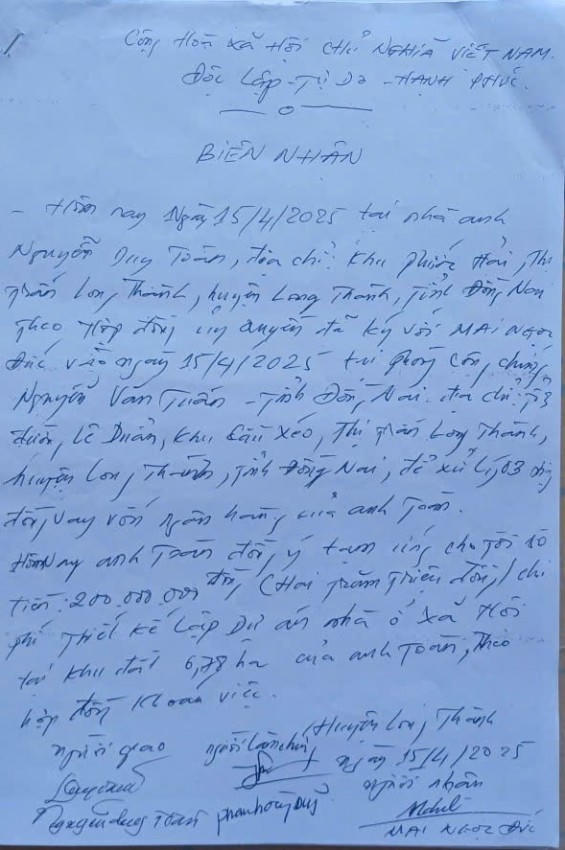 Cộng Hoà Xã Hội Chủ Nghĩa Việt Nam.
Độc Lập - Tự Do - Hạnh Phúc.
Biên Nhận
- Hôm nay Ngày 15/4/2025 tại nhà anh
Nguyễn Duy Toàn, địa chỉ: Khu Phước Hải, Thị
trấn Long Thành, huyện Long Thành, tỉnh Đồng Nai
Theo Hợp đồng uỷ quyền đã ký với Mai Ngọc
Đức vào ngày 15/4/2025 tại phòng công chứng
Nguyễn Văn Tuấn - tỉnh Đồng Nai. địa chỉ:
đường Lê Duẩn, Khu Cầu Xéo, Thị trấn Long Thành,
huyện Long Thành, tỉnh Đồng Nai, để xử lý 03 hợp
đồng vay vốn ngân hàng của anh Toàn.
Hôm nay anh Toàn đồng ý tạm ứng cho tôi số
tiền: 200.000.000 đồng (Hai trăm triệu đồng) chi
phí Thiết kế Lập Dự án nhà ở Xã Hội
tại khu đất 6,78 ha của anh Toàn, Theo
hợp đồng Khoán việc.
Huyện Long Thành
ngày 15/4/2025
người giao người làm chứng người nhận
Nguyễn duy Toàn phan hoàng
Mai Ngọc Đức